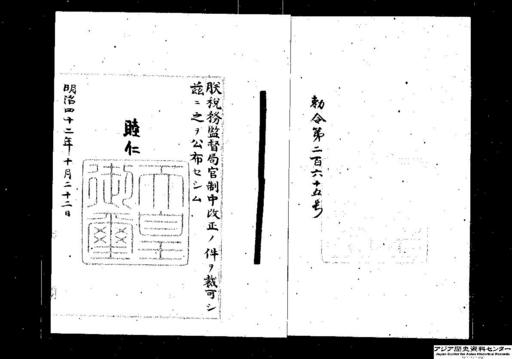 勅令第二百六十五号
朕税務監督局官制中改正ノ件ヲ裁可シ
茲ニ之ヲ公布セシム
睦仁
天皇
御璽
明治四十二年十月二十二日
アジア歴史資料センター
Japan Center for Asian Historical Records